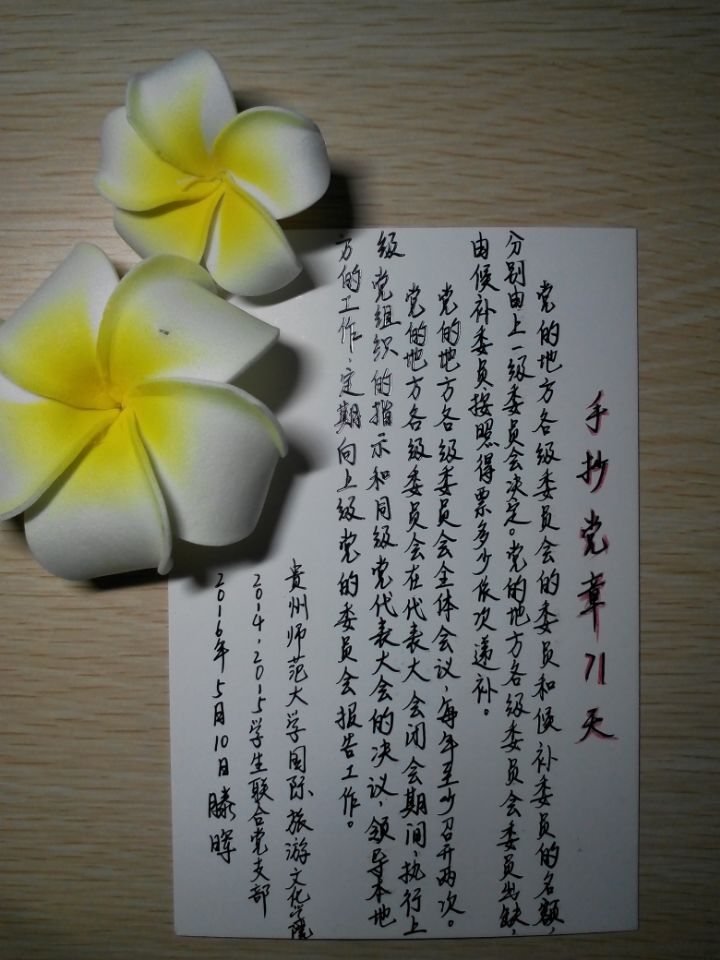 手抄党章71天
党的地方各级委员会的委员和候补委员的名额，
分别由上一级委员会决定。党的地方各级委员会委员出缺，
由候补委员按照得票多少依次递补。
党的地方各级委员会全体会议，每年至少召开两次。
党的地方各级委员会在代表大会闭会期间，执行上
级党组织的指示和同级党代表大会的决议，领导本地
方的工作，定期向上级党的委员会报告工作。
贵州师范大学国际旅游文化学院
2014、2015学生联合党支部
2016年5月10日 滕晖